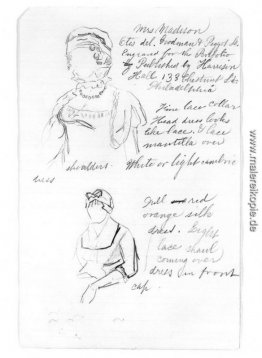 Mrs Madison
Otis del. Goodman & Piggot Sc.
Engraved for the Portfolio
by Published by Harrison
Hall 133 Chestnut St.
Philadelphia
Fine lace collar
Head dress looks
like lace. Lace
mantilla over
shoulders. White or light cambric
dress
Full red
orange silk
dress. Light
lace shawl
coming over
dress in front
cap.
www.malereikopie.de